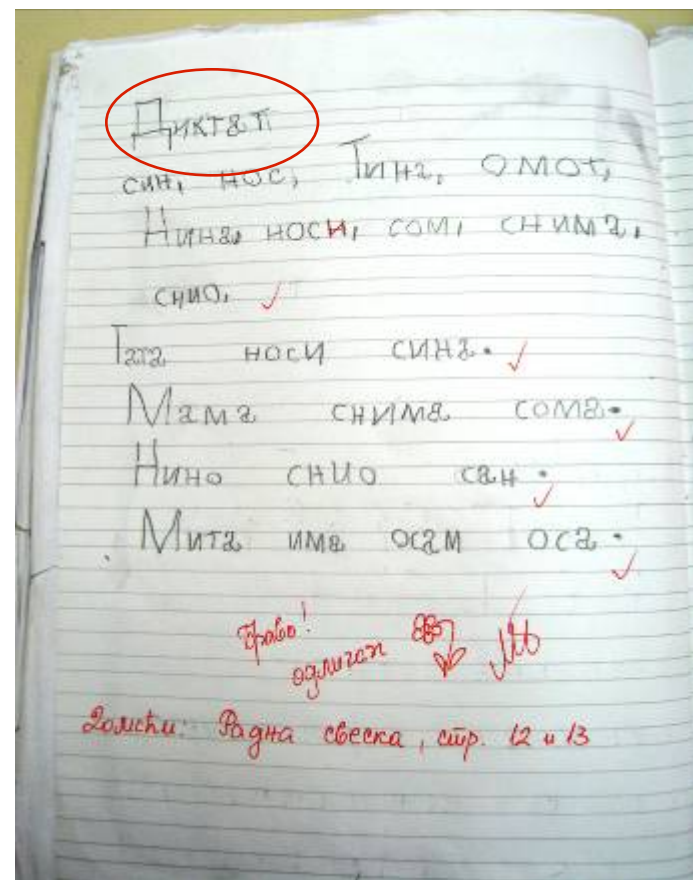 Диктат
син, нос, Тина, омот,
Нина, носи, сом, снима,
снио.
Тата носи сина.
Мама снима сома.
Нино снио сан.
Мита има осам оса.
Браво!
одличан
Домаћи: Радна свеска, стр. 12 и 13